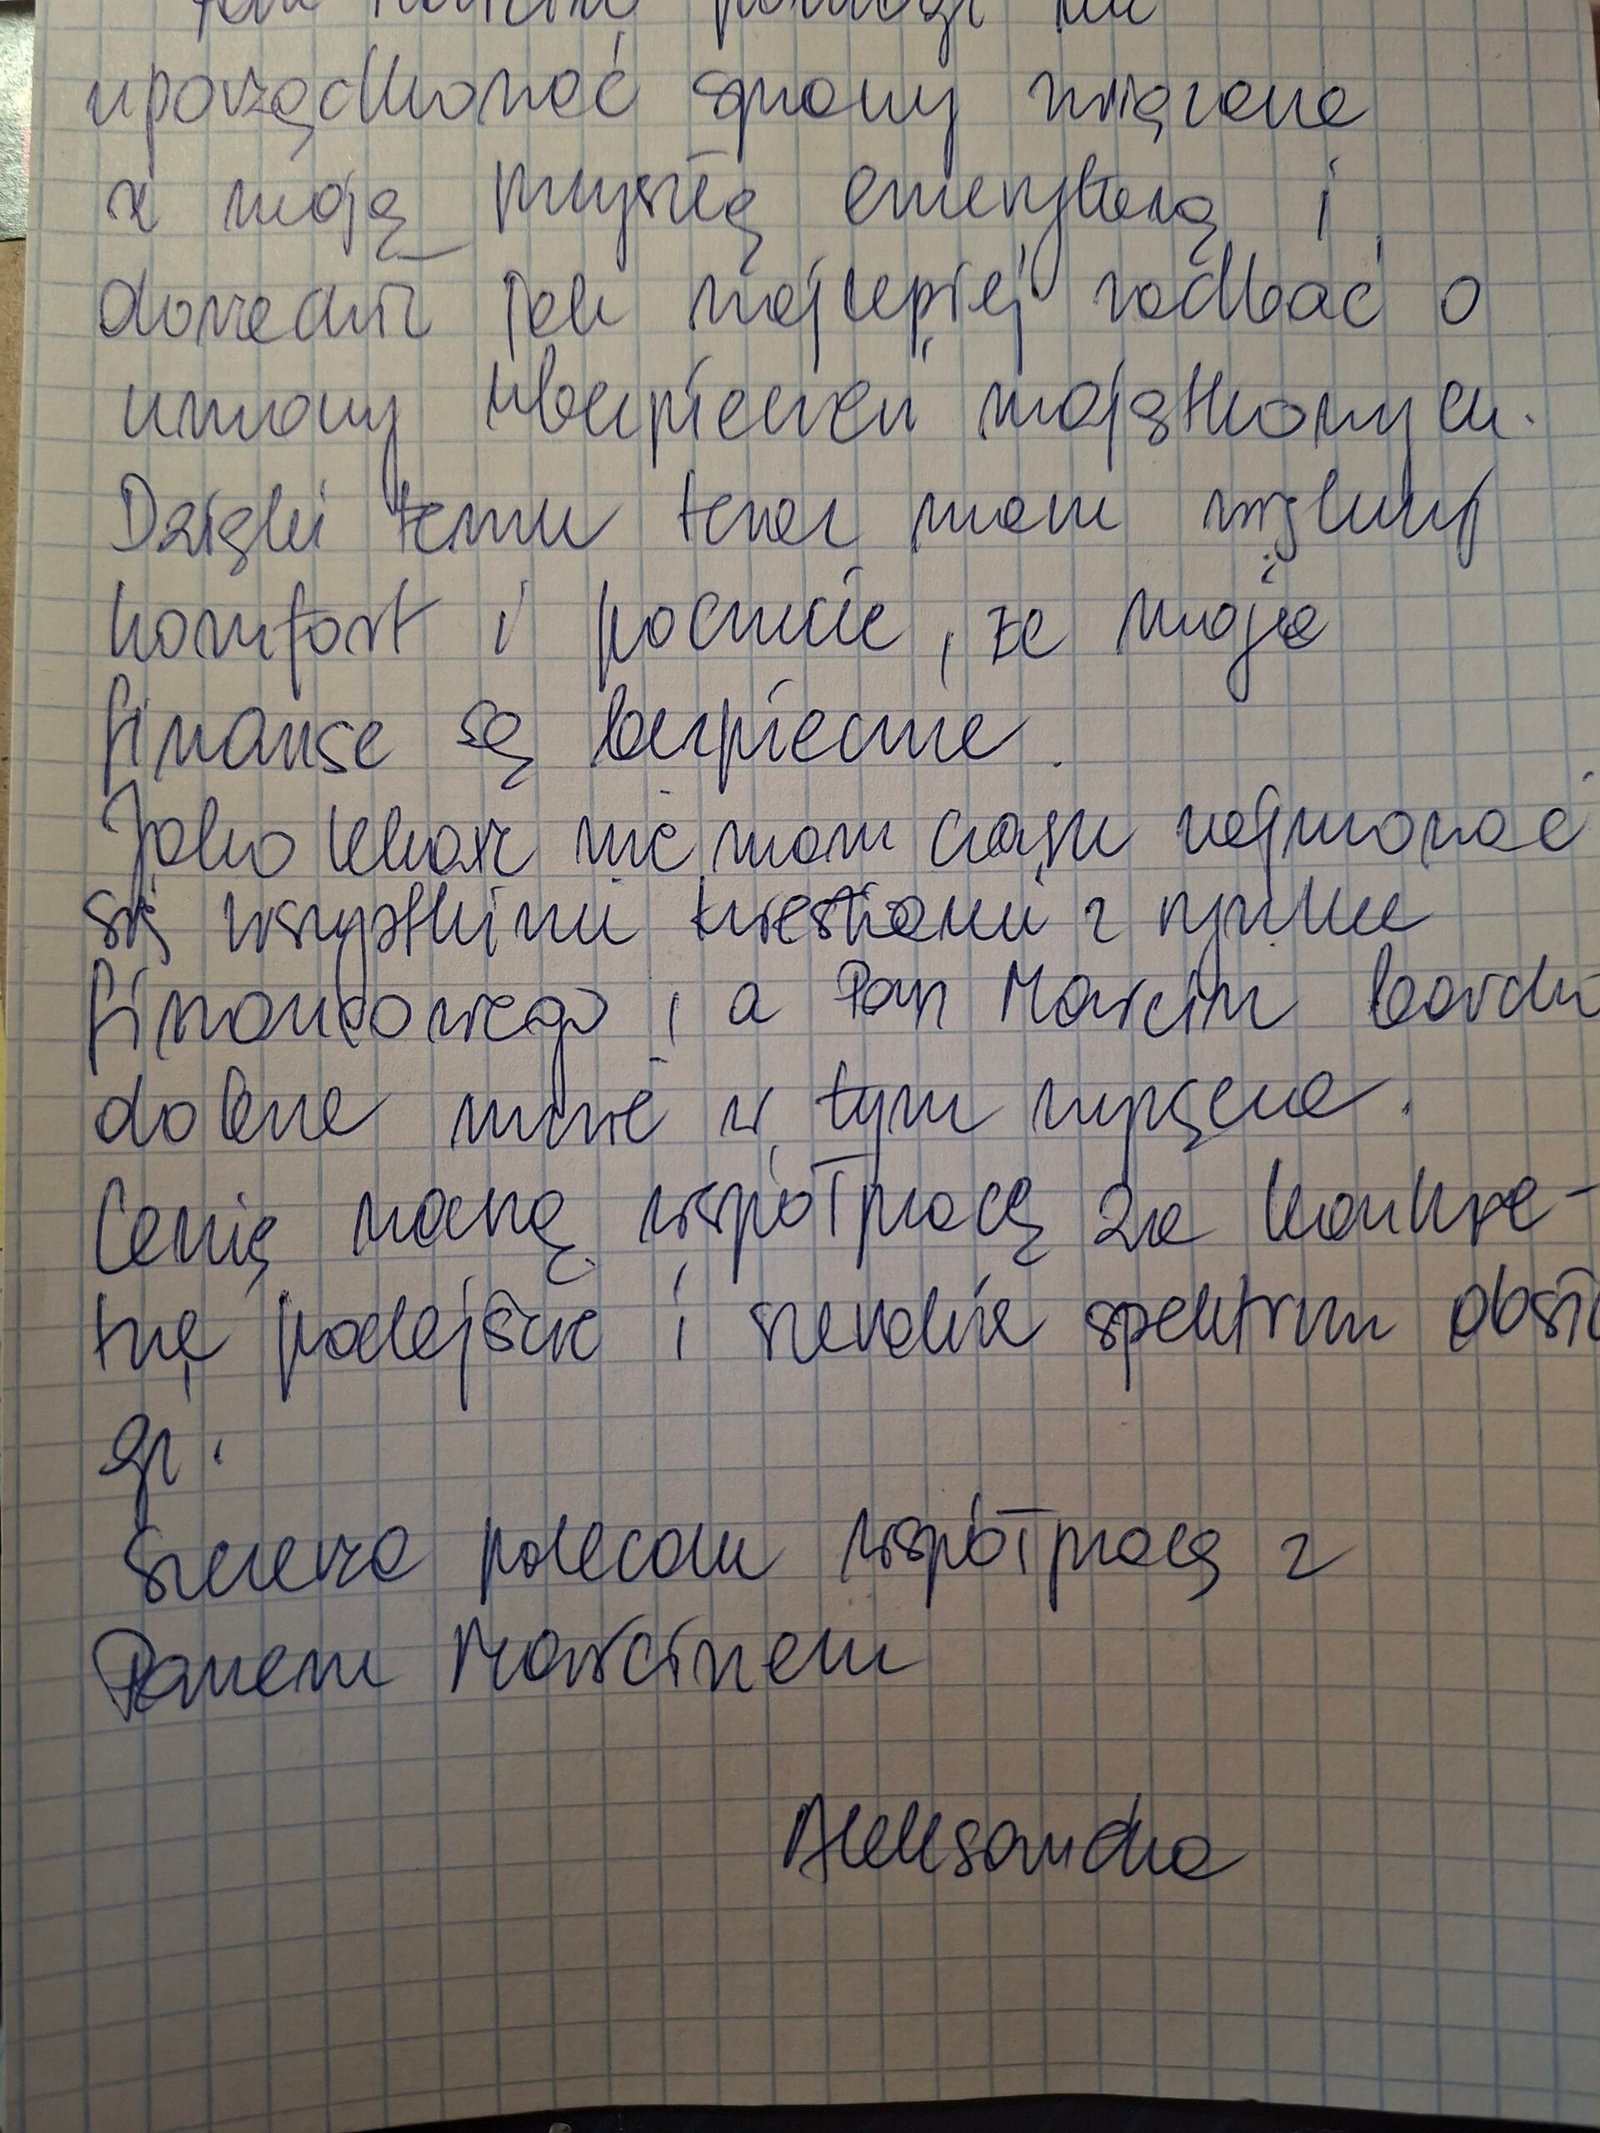 Pan Marcin pomógł mi
uporządkować sprawy związane
z moją przyszłą emeryturą i
doradził jak najlepiej zadbać o
umowy ubezpieczeń majątkowych.
Dzięki temu teraz mam większy
komfort i poczucie, że moje
finanse są bezpieczne.
Jako lekarz nie mam czasu zajmować
się wszystkimi kwestiami z rynku
finansowego, a Pan Marcin bardzo
dobrze mnie w tym wspiera.
Cenię naszą współpracę za konkre-
tne podejście i szerokie spektrum obsłu
gi.
Szczerze polecam współpracę z
Panem Marcinem
Aleksandra